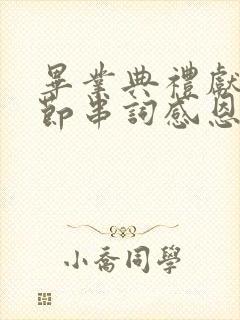 畢業典禮獻
節串詞感恩
小喬同學